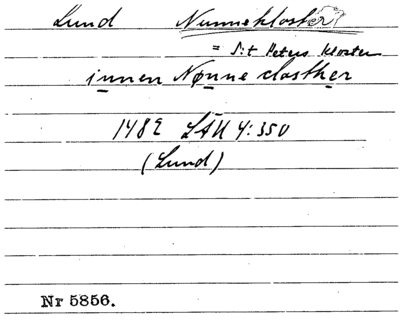 Lund Nunnekloster
= S:t Peters kloster
innen Nønne closther
1482 LAU 4:350
(Lund)
Nr 5856.